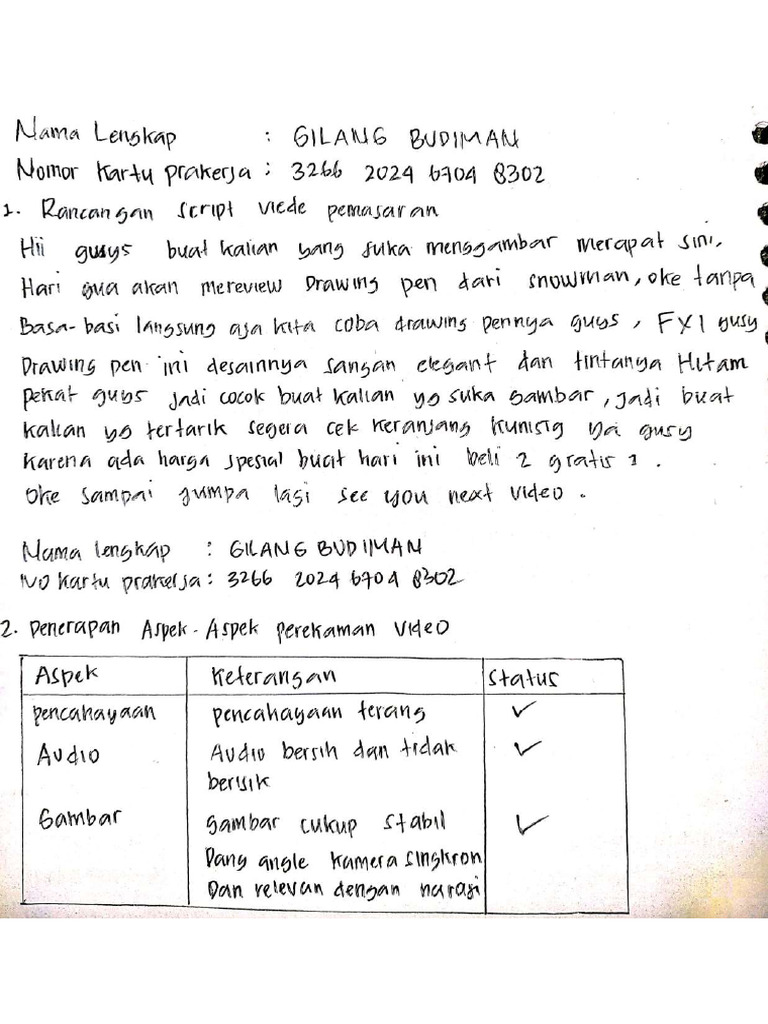 Nama Lengkap : GILANG BUDIMAN
Nomor Kartu prakerja : 3266 2024 6704 8302
1. Rancangan script viede pemasaran
Hii gusys buat kalian yang suka menggambar merapat sini,
Hari gua akan mereview Drawing pen dari snowman, oke tanpa
Basa-basi langsung aja kita coba drawing pennya guys, FX1 gusy
Drawing pen ini desainnya sangan elegant dan tintanya Hitam
pekat guys jadi cocok buat kalian yg suka gambar, jadi buat
kalian yg tertarik segera cek keranjang kunisig ya gusy
karena ada harga spesial buat hari ini beli 2 gratis 1.
Oke sampai jumpa lagi see you next video.
Nama lengkap : GILANG BUDIMAN
No kartu prakerja : 3266 2024 6704 8302
2. penerapan Aspek-Aspek perekaman video
Aspek keterangan status
pencahayaan pencahayaan terang ✓
Audio Audio bersih dan tidak ✓
berisik
Gambar gambar cukup stabil ✓
Dang angle kamera singkron
Dan relevan dengan narasi